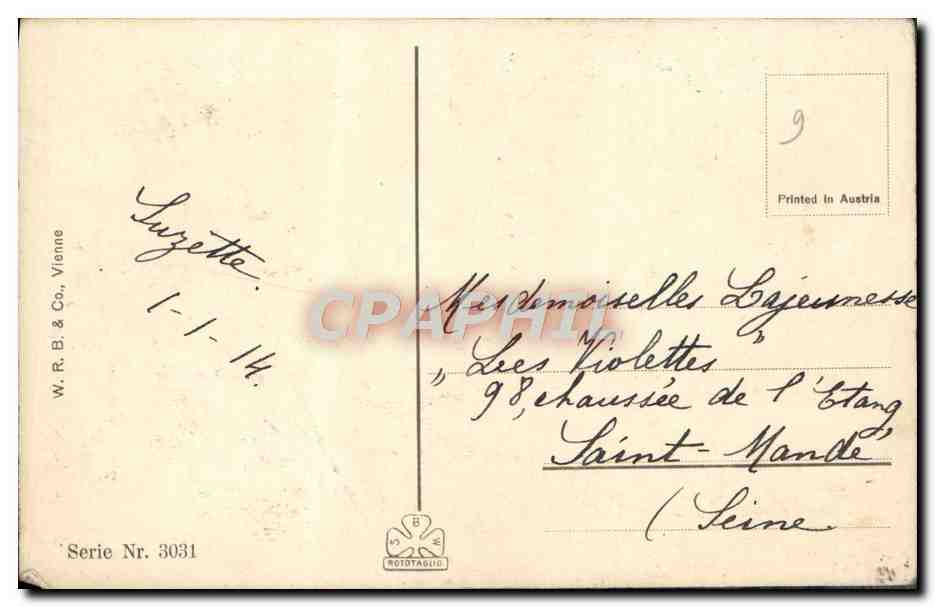 W. R. B. & Co., Vienne
Suzette.
1-1-14.
Serie Nr. 3031
S B W
ROTOTAGLIO
9
Printed in Austria
Mesdemoiselles Lajeunesse
„ Les Violettes "
98, chaussée de l'Etang,
Saint-Mandé
(Seine
CPAPHIL